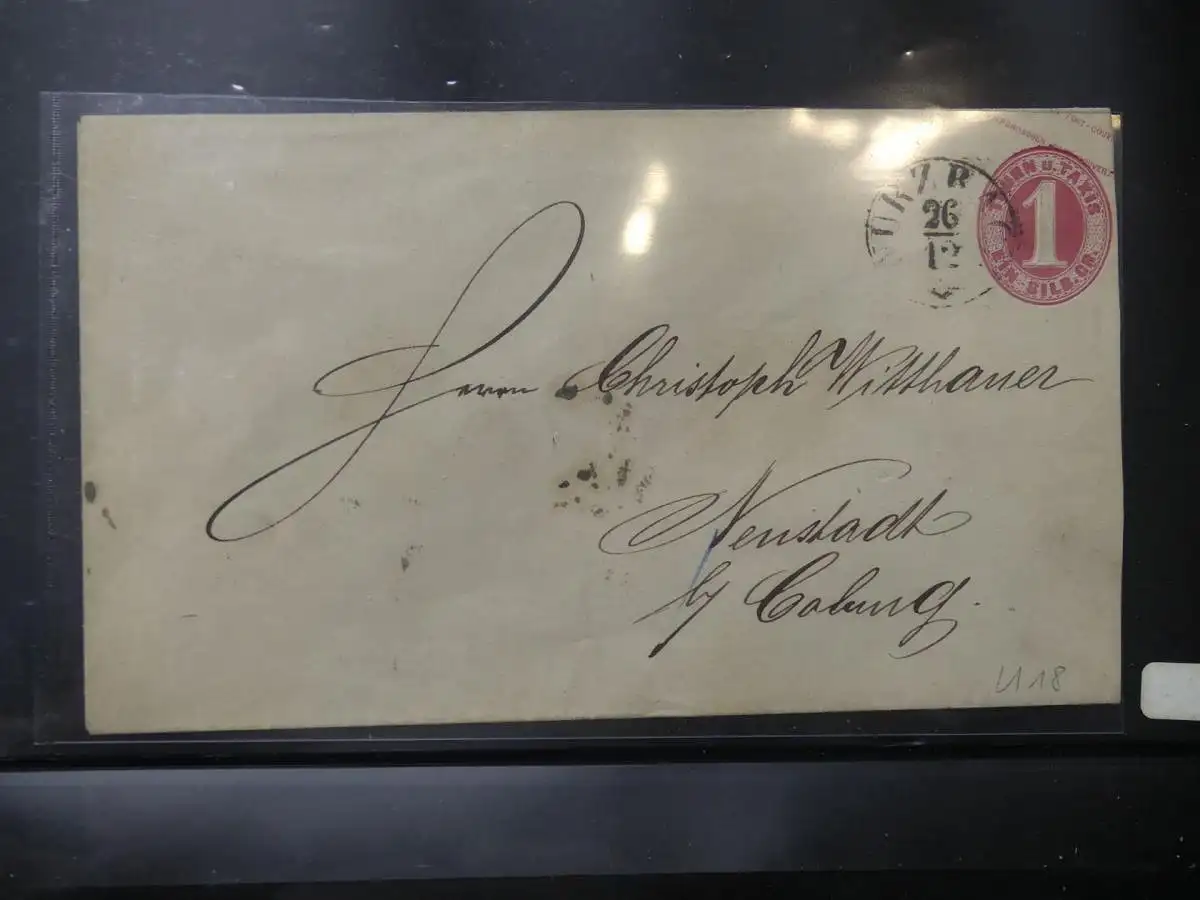 POST-COUV
THURN U. TAXIS
1
EIN SILB. GR.
26
12
Herrn Christoph Witthauer
Neustadt
b/ Coburg.
U 18